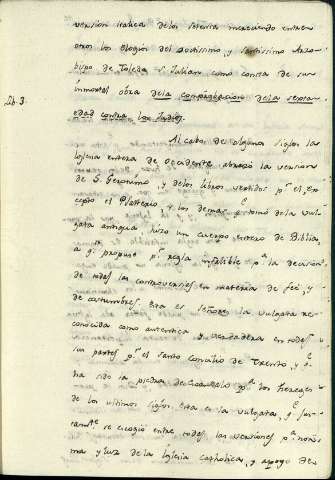 version italica de los setenta mereciendo entre
otros los elogios del Doctissimo, y Santissimo Arzo-
bispo de Toledo S. Julian como consta de su
Lib. 3.
inmortal obra de la comprobacion de la sexta
edad contra los Judios.
Al cabo de algunos siglos la
Iglesia entera de Occidente abrazó la version
de S. Geronimo, y de los libros vertidos pr el, ex-
cepto el Psalterio, y los demas q tomó de la vul-
gata antigua, hizo un cuerpo entero de Biblia,
a q propuso pr regla infalible pa la decision
de todas las controversias en materia de feé, y
de costumbres. Esta es Señores la vulgata re-
conocida como autentica y verdadera en todas
sus partes pr el Santo Concilio de Trento, y q
ha sido la piedra de escandalo pa los hereges
de los ultimos siglos. Esta es la vulgata, q
se escogió entre todas las versiones pa nor-
ma y luz de la Iglesia catholica, y apoyo de